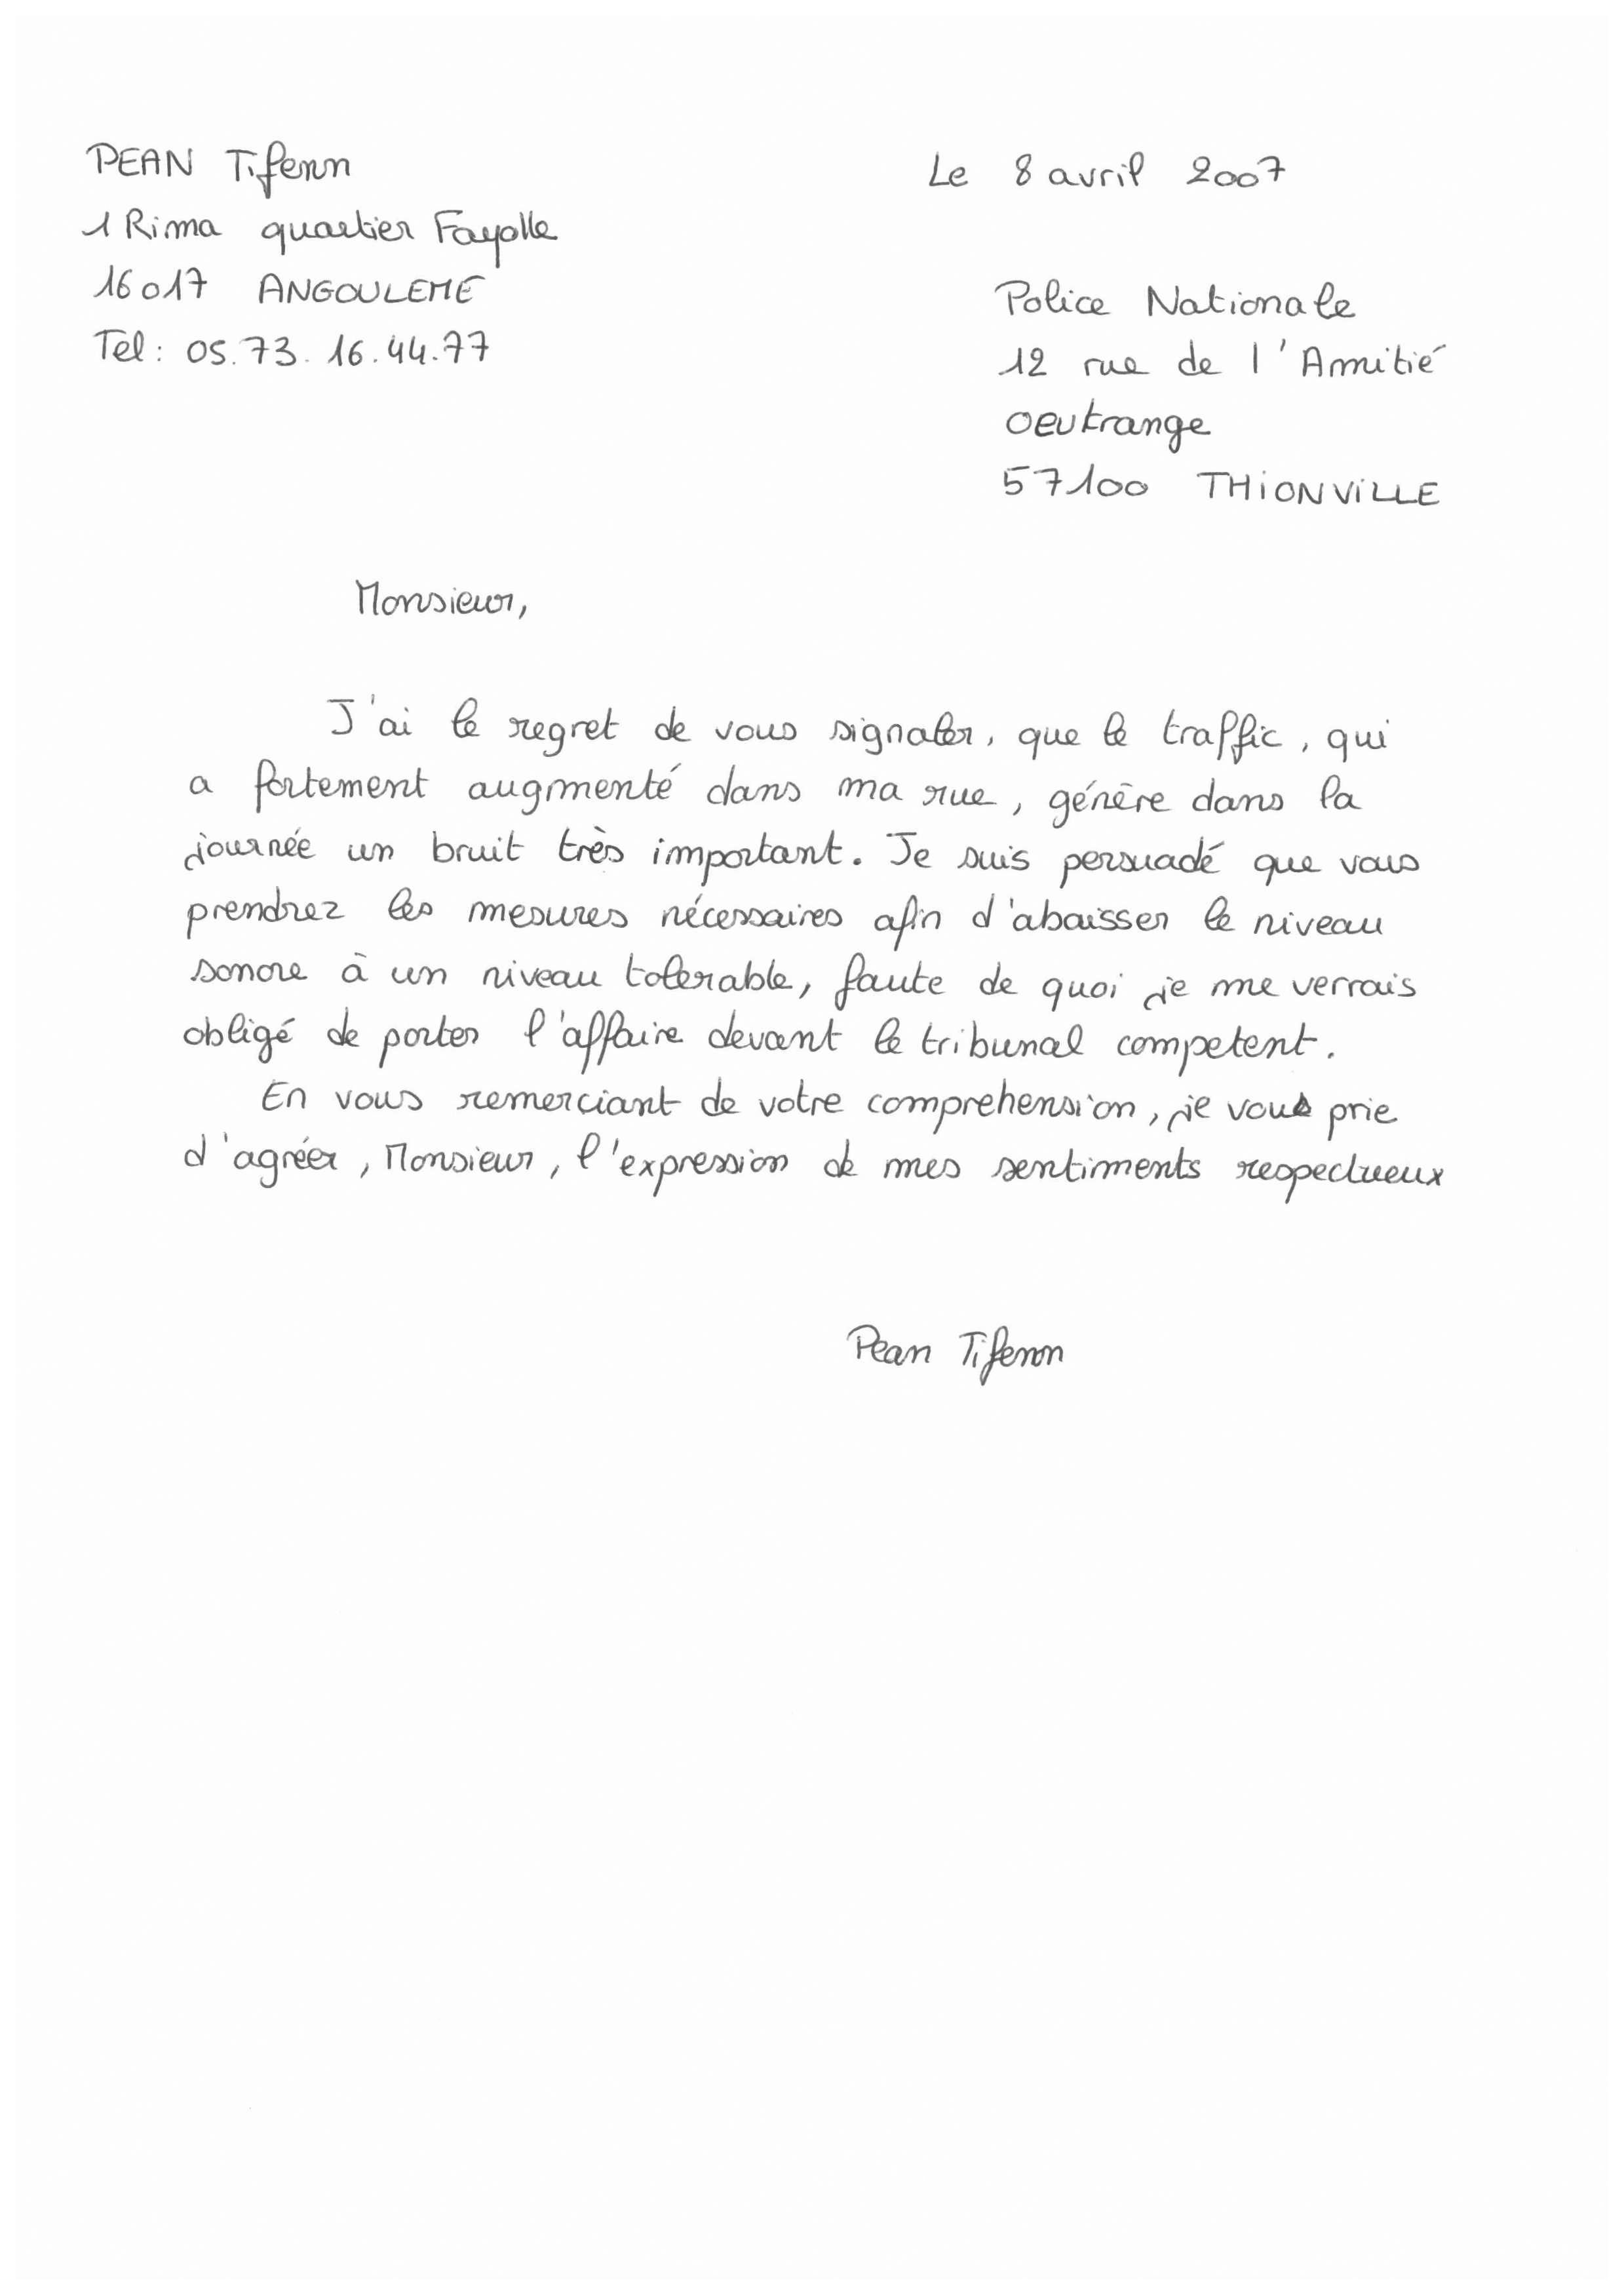 PEAN Tifenn
1 Rima quartier Fayolle
16017 ANGOULEME
Tel: 05.73.16.44.77
Le 8 avril 2007
Police Nationale
12 rue de l'Amitié
oeutrange
57100 THIONVILLE
Monsieur,
J'ai le regret de vous signaler, que le traffic, qui
a fortement augmenté dans ma rue, génère dans la
journée un bruit très important. Je suis persuadé que vous
prendrez les mesures nécessaires afin d'abaisser le niveau
sonore à un niveau tolerable, faute de quoi je me verrais
obligé de porter l'affaire devant le tribunal competent.
En vous remerciant de votre comprehension, je vous prie
d'agréer, Monsieur, l'expression de mes sentiments respectueux
Pean Tifenn